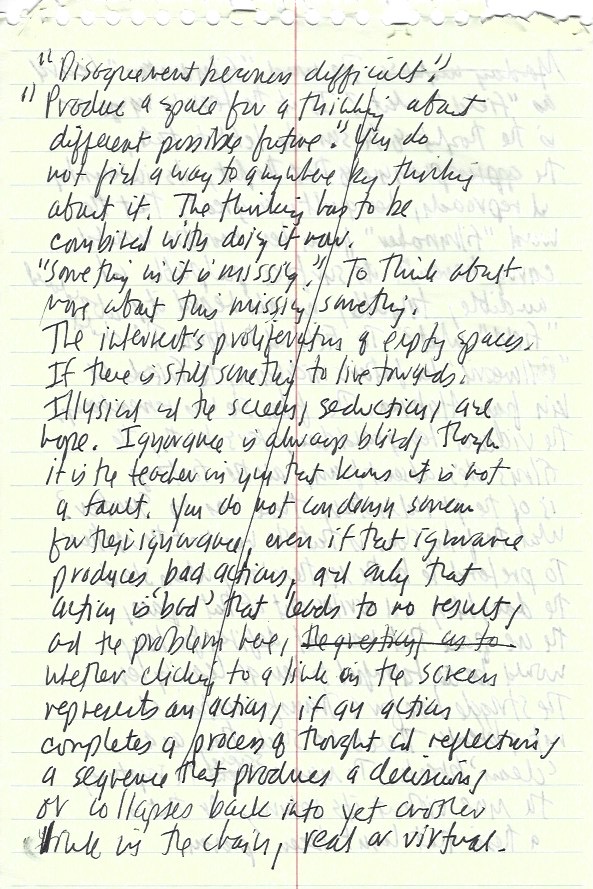 "Disagreement becomes difficult."
"Produce a space for a thinking about
different possible future." You do
not find a way to anywhere by thinking
about it. The thinking has to be
combined with doing it now.
"Something in it is missing." To think about
more about this missing something.
The internet's proliferation of empty spaces.
If there is still something to live towards.
Illusion and the screen, seduction, are
hope. Ignorance is always blind, though
it is the teacher in you that knows it is not
a fault. You do not condemn someone
for their ignorance, even if that ignorance
produces bad actions, and only that
action is 'bad' that leads to no result,
and the problem here, the question, as to
whether clicking to a link on the screen
represents an action, if an action
completes a process of thought and reflection,
a sequence that produces a decision,
or collapses back into yet another
link in the chain, real or virtual.